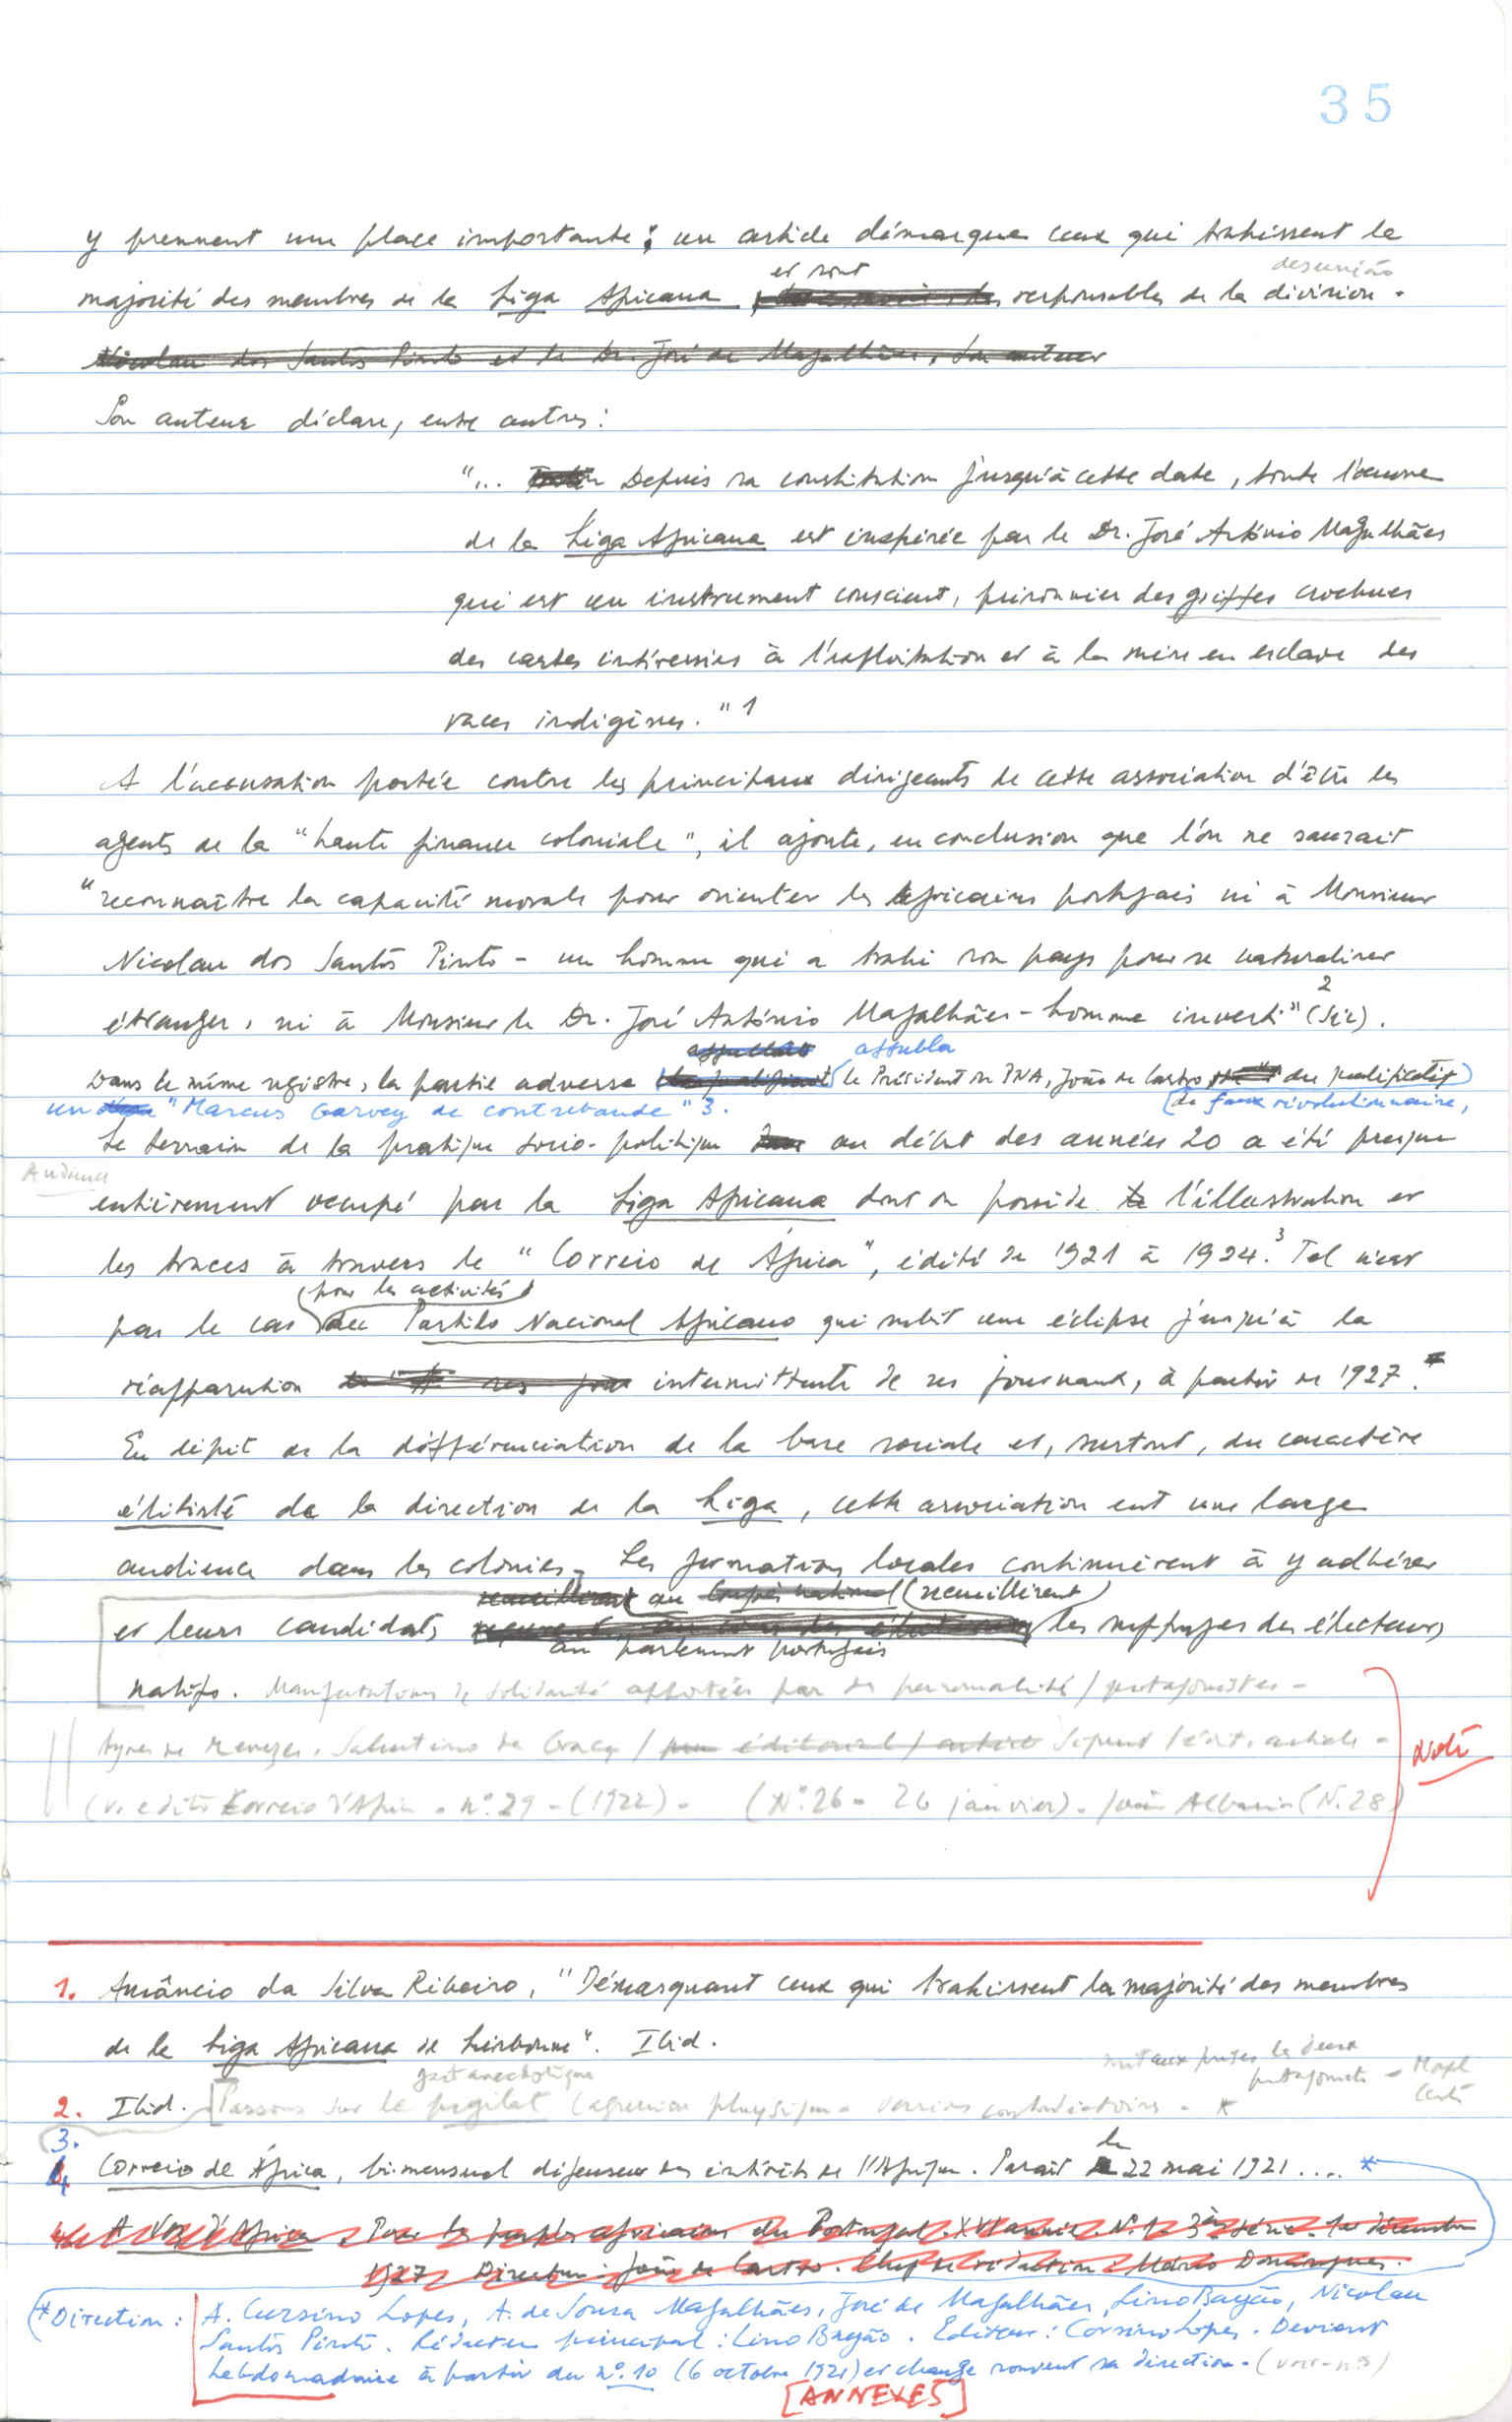 35
y prennent une place importante ; un article démarque ceux qui trahissent la
et sont
desunião
majorité des membres de la Liga Africana responsables de la division.
Nicolau dos Santos Pinto et le Dr. José de Magalhães, Son auteur
Son auteur déclare, entre autres :
"... Depuis sa constitution jusqu'à cette date, toute l'oeuvre
de la Liga Africana est inspirée par le Dr. José António Magalhães
qui est un instrument conscient, prisonnier des griffes crochues
des castes intéressées à l'exploitation et à la mise en esclave des
races indigènes." 1
A l'accusation portée contre les principaux dirigeants de cette association d'être les
agents de la "haute finance coloniale", il ajoute, en conclusion que l'on ne saurait
"reconnaître la capacité morale pour orienter les africains portugais ni à Monsieur
Nicolau dos Santos Pinto - un homme qui a trahi son pays pour se naturaliser
étranger, ni à Monsieur le Dr. José António Magalhães - homme inverti" 2 (sic).
affubla
Dans le même registre, la partie adverse le Président du PNA, João de Castro du qualificatif
de faux révolutionnaire,
un "Marcus Garvey de contrebande" 3.
Le terrain de la pratique socio-politique au début des années 20 a été presque
Audience
entièrement occupé par la Liga Africana dont on possède l'illustration et
les traces à travers le "Correio de África", édité de 1921 à 1924. 3 Tel n'est
(pour les activités)
pas le cas du Partido Nacional Africano qui subit une éclipse jusqu'à la
réapparution intermittente de ses journaux, à partir de 1927.
En dépit de la différenciation de la base sociale et, surtout, du caractère
élitiste de la direction de la Liga, cette association eut une large
audience dans les colonies. Les formations locales continuèrent à y adhérer
recueillirent au Congrès national (recueillirent)
et leurs candidats les suffrages des électeurs
au parlement portugais
natifs. Manifestations de solidarité apportées par des personnalités / protagonistes -
Ayres de Menezes. Salustino da Graça / éditorial / article
(v. edito Correio d'Africa - n° 29 - (1922) - (N° 26 - 26 janvier) - João Albasini (N. 28)
Note
1. Amâncio da Silva Ribeiro, "Démasquant ceux qui trahissent la majorité des membres
de la Liga Africana de Lisbonne". Ibid.
les deux
protagonistes
2. Ibid. Passons sur le pugilat (agression physique - versions contradictoires - *
3.
4 Correio de África, bi-mensuel défenseur des intérêts de l'Afrique. Parait le 22 mai 1921 .... *
A Voz d'Africa. Pour les peuples africains du Portugal. XVI année. N° 1. 3ème série. 1er décembre
1927 Directeur : João de Castro. Chef de rédaction : Mário Domingues.
* Direction : A. Cursino Lopes, A. de Sousa Magalhães, José de Magalhães, Lino Bayão, Nicolau
Santos Pinto. Rédacteur principal : Lino Bayão. Editeur : Corsino Lopes. Devient
hebdomadaire à partir du n° 10 (6 octobre 1921) et change souvent sa direction - (voir - n°s)
[ANNEXES]